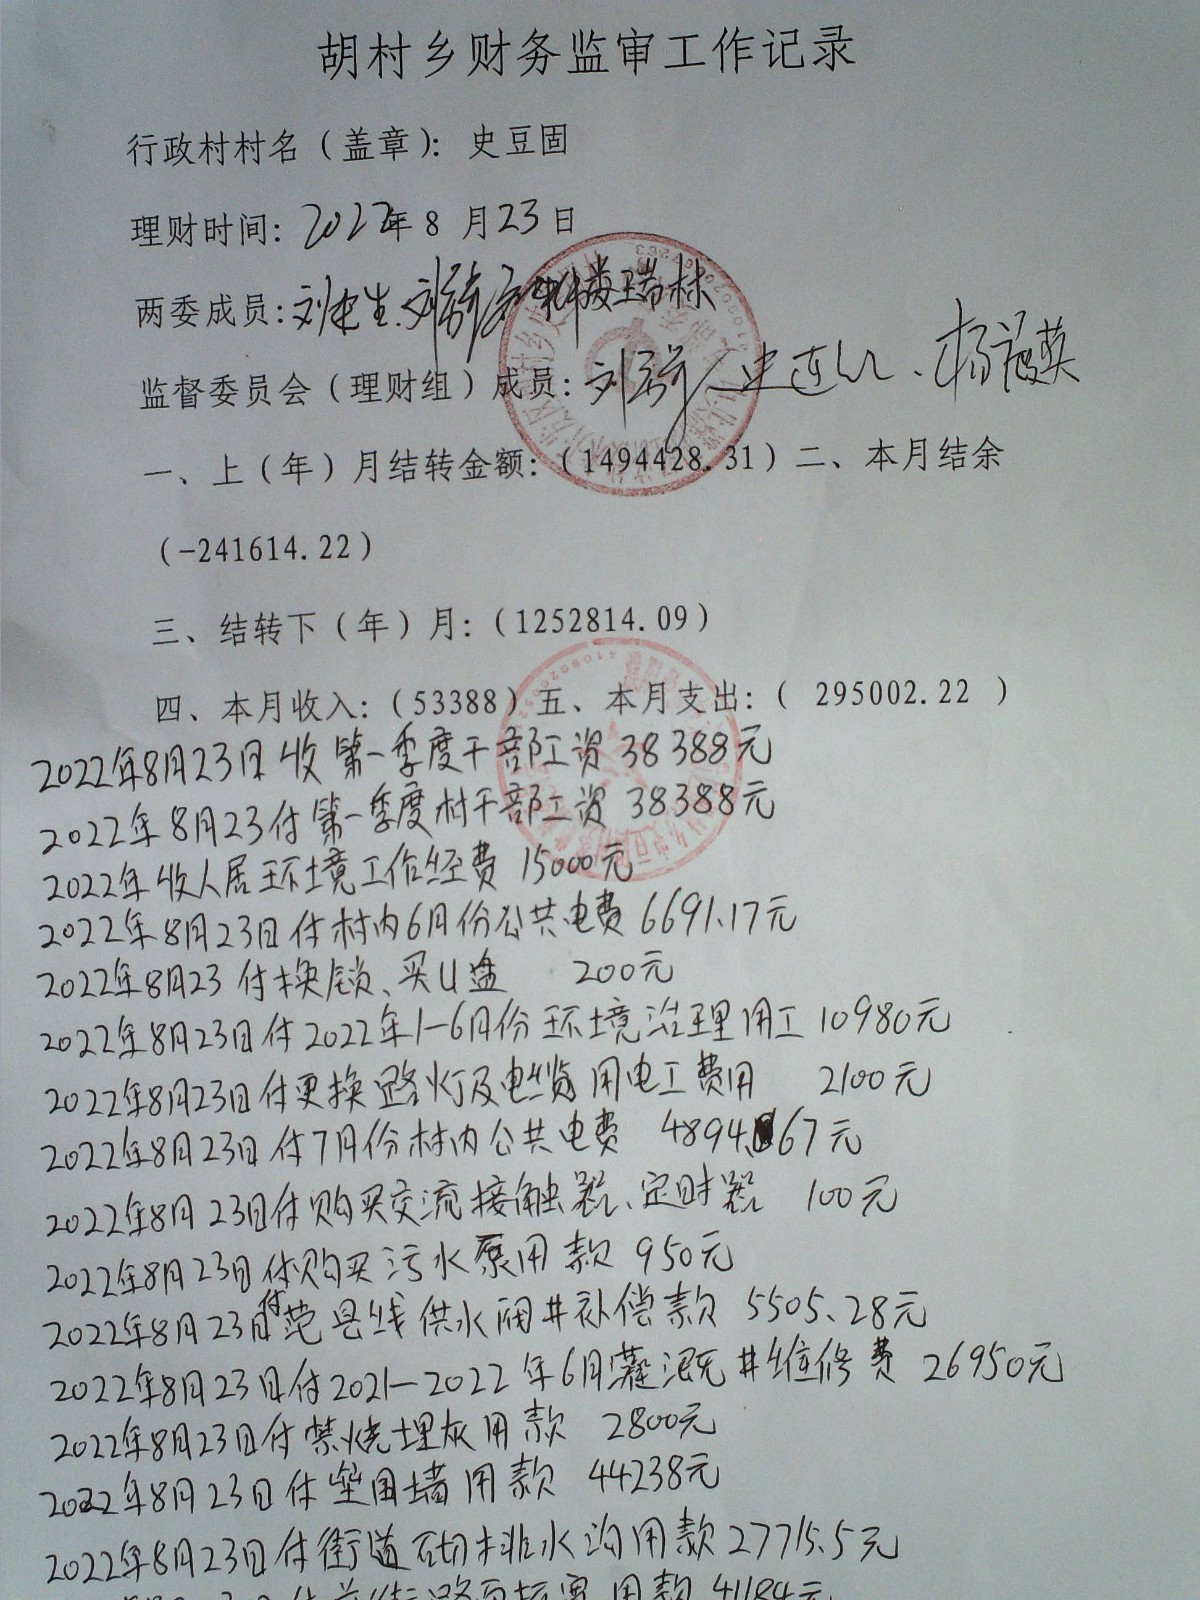 胡村乡财务监审工作记录
行政村村名（盖章）：史豆固
理财时间：2022年8月23日
两委成员：刘忠生、刘 楼瑞林
监督委员会（理财组）成员：刘 史连 、杨 英
一、上（年）月结转金额：（1494428.31）二、本月结余
（-241614.22）
三、结转下（年）月：（1252814.09）
四、本月收入：（53388）五、本月支出：（ 295002.22 ）
2022年8月23日收第一季度干部工资 38388元
2022年8月23付第一季度村干部工资 38388元
2022年收人居环境工作经费 15000元
2022年8月23日付村内6月份公共电费 6691.17元
2022年8月23付换锁、买U盘 200元
2022年8月23日付2022年1-6月份环境治理用工10980元
2022年8月23日付更换路灯及电缆用电工费用 2100元
2022年8月23日付7月份村内公共电费 4894.67元
2022年8月23日付购买交流接触器、定时器 100元
2022年8月23日付购买污水泵用款 950元
2022年8月23日付范县线供水闸井补偿款 5505.28元
2022年8月23日付2021—2022年6月灌溉井维修费 26950元
2022年8月23日付禁烧埋灰用款 2800元
2022年8月23日付垒围墙用款 44238元
2022年8月23日付街道砌排水沟用款27715.5元
用款41184元